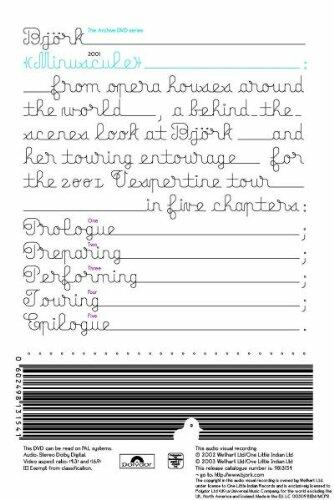 Björk The Archive DVD series
《Minuscule》 2001 :
from opera houses around
the world , a behind the
scenes look at Björk and
her touring entourage for
the 2001 Vespertine tour
in five chapters:
One
Prologue ;
Two
Preparing ;
Three
Performing ;
Four
Touring ;
Five
Epilogue .
0 602498 131541
This DVD can be read on PAL systems.
Audio: Stereo Dolby Digital.
Video aspect ratio: 4:3 and 16:9.
E Exempt from classification.
polydor
The audio visual recording
© 2002 Wellhart Ltd/One Little Indian Ltd
© 2003 Wellhart Ltd/One Little Indian Ltd
This release catalogue number is:
go to: http://www.bjork.com
The copyright in this audio visual recording is owned by Wellhart Ltd/One Little Indian Records and is
under license to One Little Indian Records and is exclusively licensed to
Polydor Ltd (UK) a Universal Music Company for the world excluding the
UK, North America and Iceland. Made in the EU.